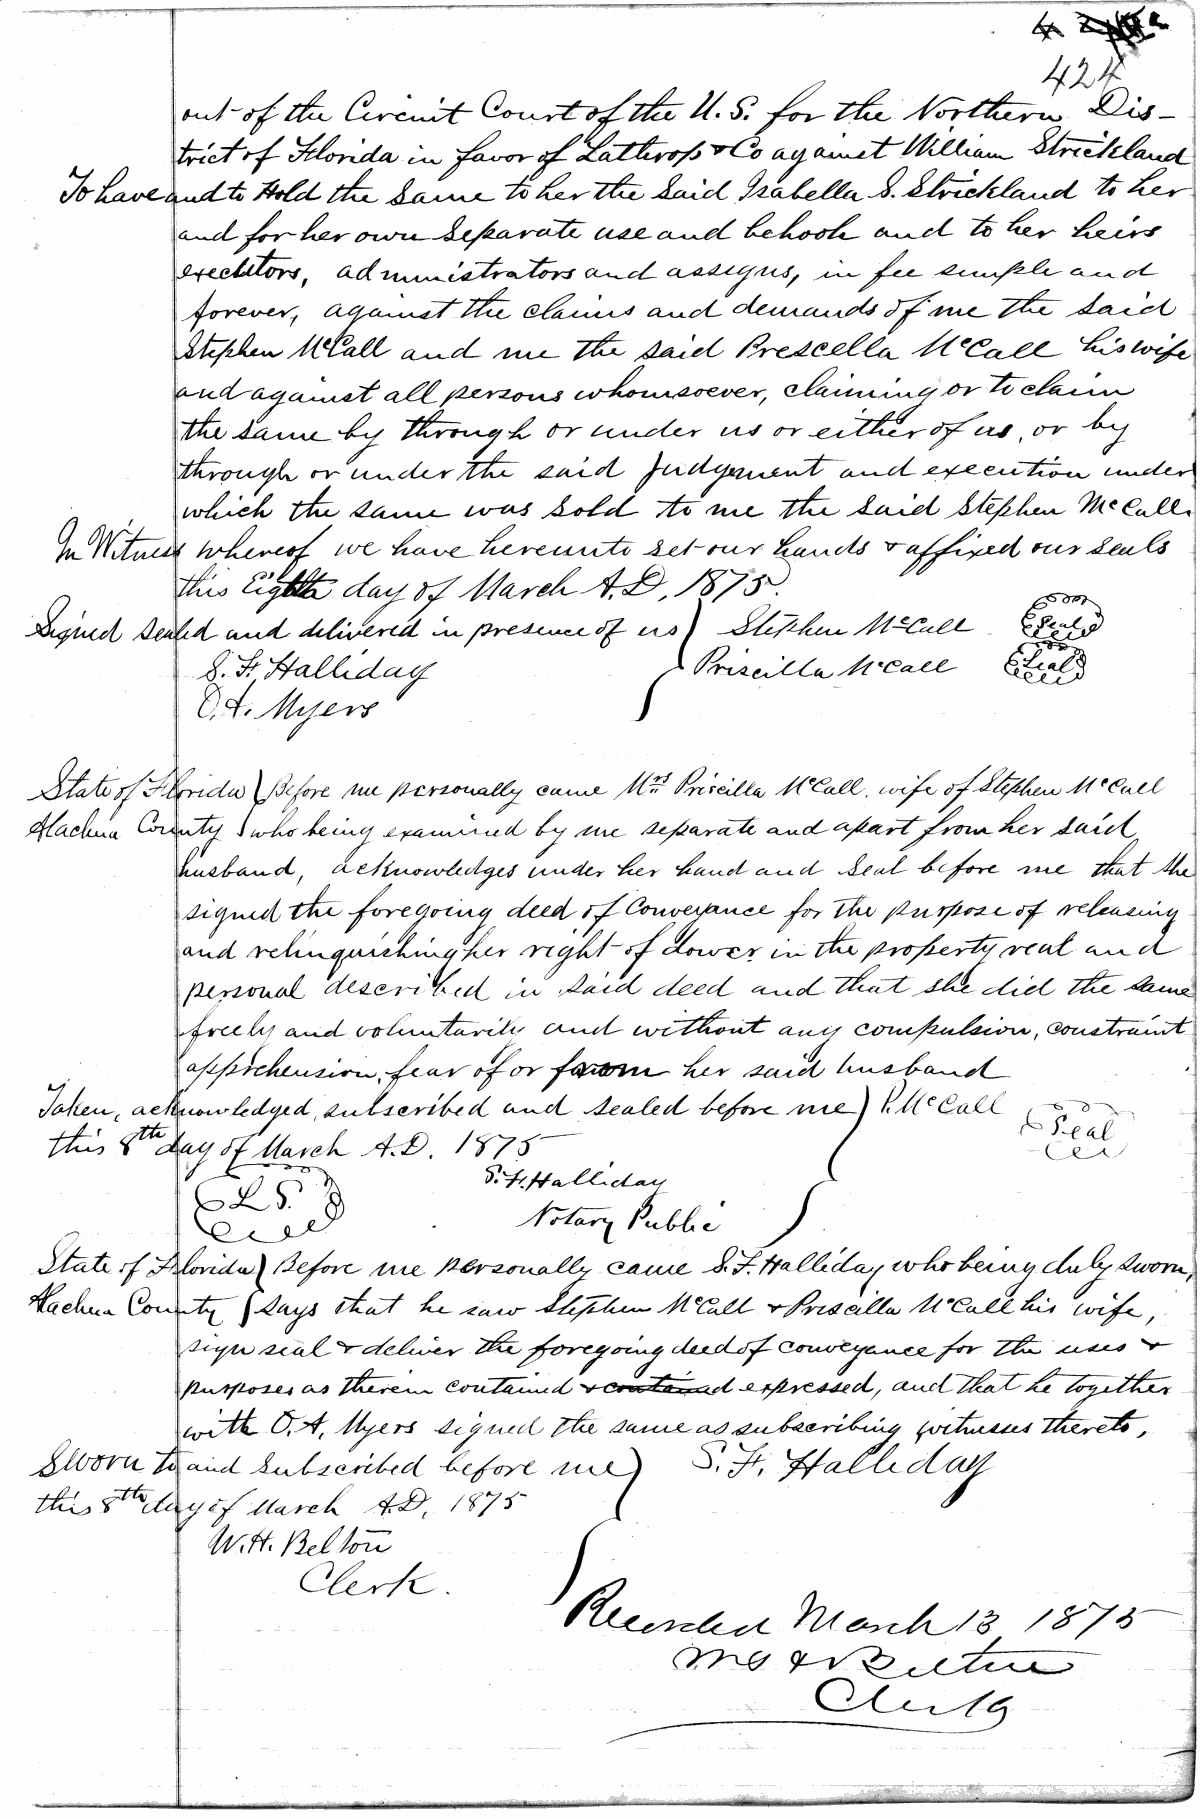 424
out of the Circuit Court of the U.S. for the Northern Dis-
trict of Florida in favor of Lathrop & Co against William Strickland
To have and to Hold the Same to her the Said Isabella S. Strickland to her
and for her own Separate use and behoof and to her heirs
executors, administrators and assigns, in fee simple and
forever, against the claims and demands of me the said
Stephen McCall and me the said Prescella McCall his wife
and against all persons whomsoever, claiming or to claim
the same by through or under us or either of us, or by
through or under the said Judgement and execution under
which the same was Sold to me the Said Stephen McCall.
In Witness whereof we have hereunto set our hands & affixed our seals
this Eighth day of March A.D. 1875.
Signed sealed and delivered in presence of us ) Stephen McCall Seal
S. F. Halliday Priscilla McCall Seal
O. A. Myers
State of Florida ) Before me personally came Mrs Priscilla McCall, wife of Stephen McCall
Alachua County ) who being examined by me separate and apart from her said
husband, acknowledges under her hand and Seal before me that she
signed the foregoing deed of Conveyance for the purpose of releasing
and relinquishing her right of dower in the property real and
personal described in said deed and that she did the same
freely and voluntarily and without any compulsion, constraint
apprehension, fear of or from her said husband
Taken, acknowledged, subscribed and sealed before me ) P. McCall Seal
this 8th day of March A.D. 1875
L S. S. F. Halliday
Notary Public
State of Florida ) Before me personally came S. F. Halliday who being duly sworn,
Alachua County ) says that he saw Stephen McCall & Priscilla McCall his wife,
sign seal & deliver the foregoing deed of conveyance for the uses &
purposes as therein contained & contained expressed, and that he together
with O. A. Myers signed the same as subscribing witnesses thereto,
Sworn to and Subscribed before me ) S. F. Halliday
this 8th day of March A.D. 1875
W. H. Belton
Clerk.
Recorded March 13 1875
Clerk